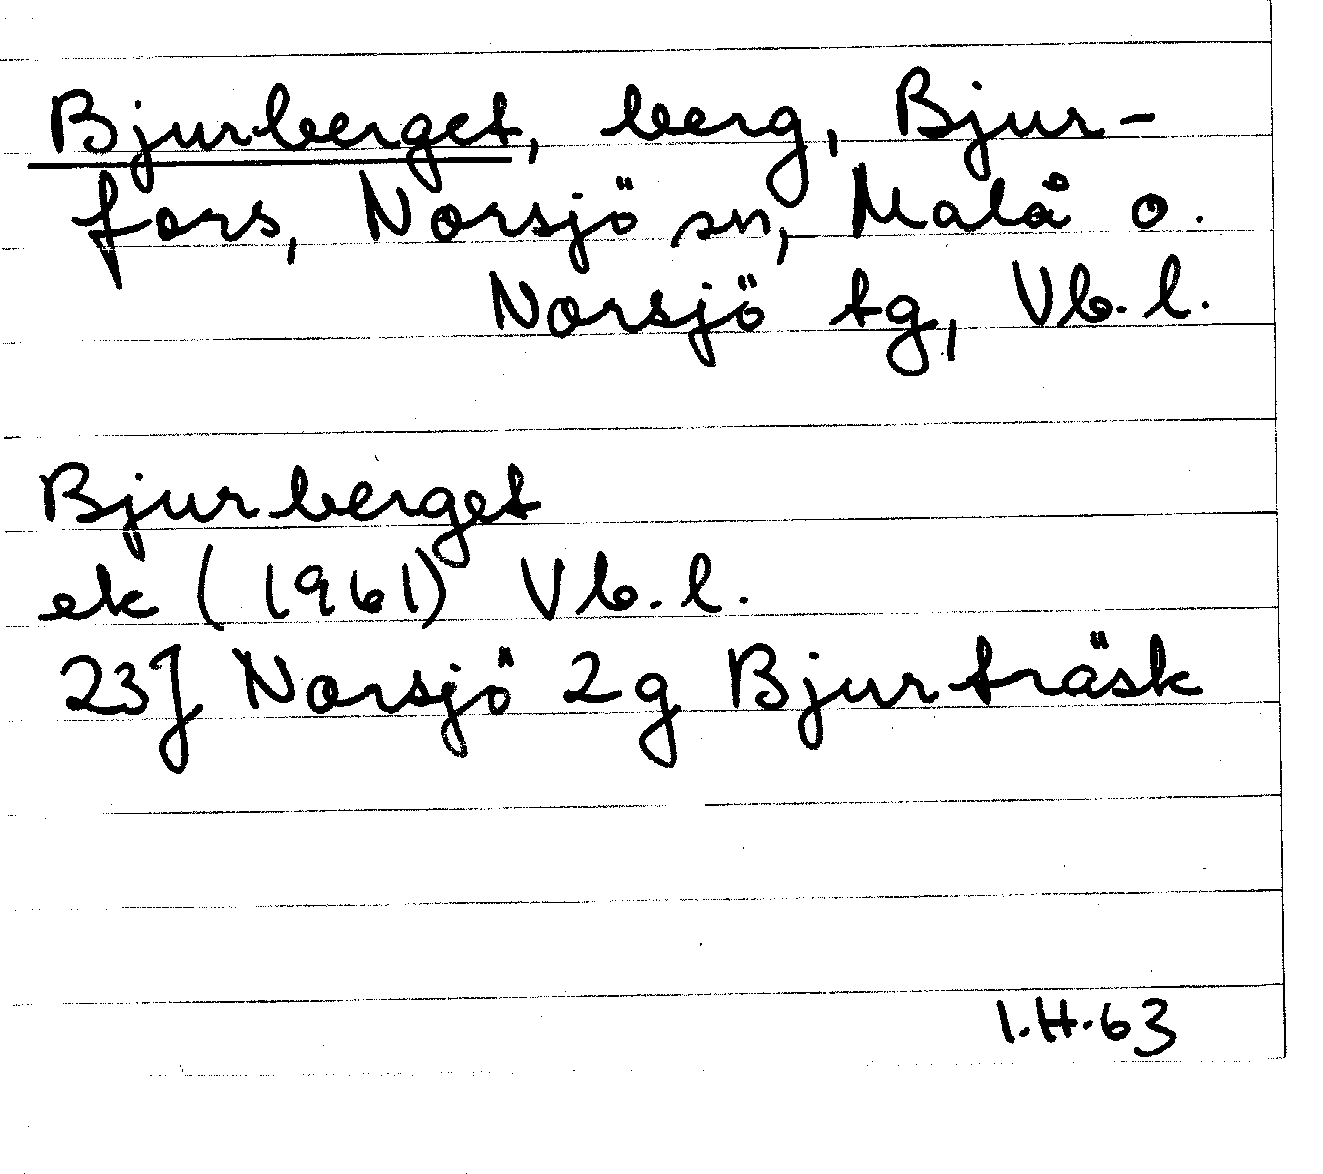 Bjurberget, berg, Bjur-
fors, Norsjö sn, Malå o.
Norsjö tg, Vb. l.
Bjurberget
ek (1961) Vb. l.
23J Norsjö 2g Bjurträsk
I.H.63